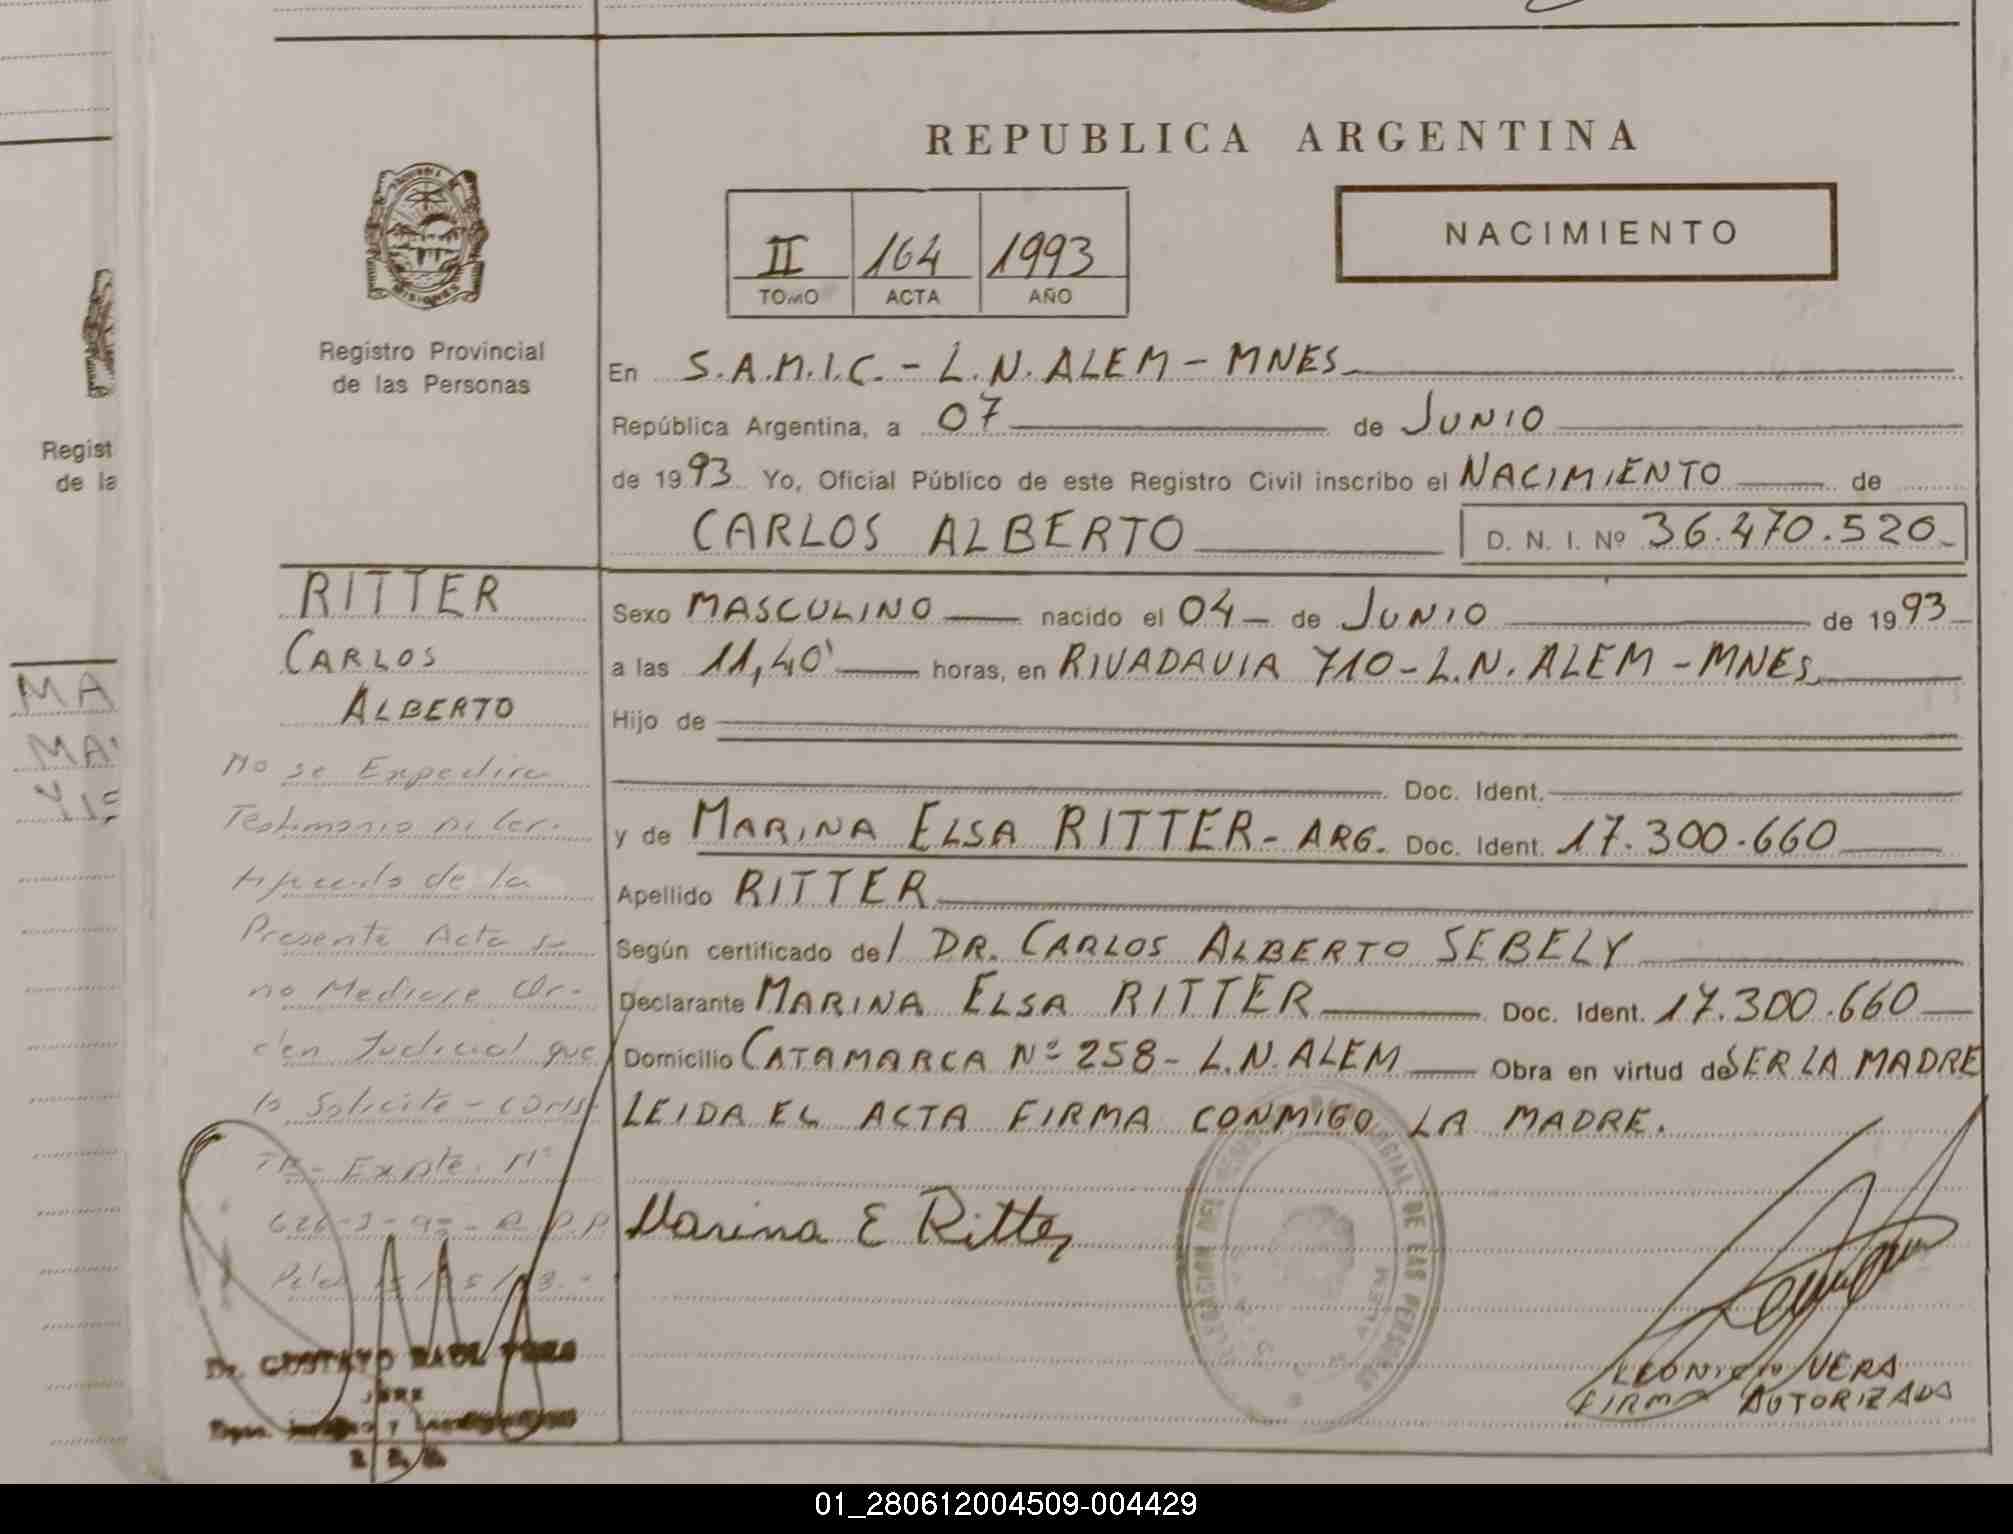 REPUBLICA ARGENTINA
NACIMIENTO
II 164 1993
TOMO ACTA AÑO
MISIONES
Registro Provincial
de las Personas
En S.A.M.I.C. - L.N. ALEM - MNES
República Argentina, a 07 de JUNIO
de 1993 Yo, Oficial Público de este Registro Civil inscribo el NACIMIENTO de
CARLOS ALBERTO D. N. I. Nº 36.470.520
RITTER
CARLOS
ALBERTO
Sexo MASCULINO nacido el 04 - de JUNIO de 1993
a las 11,40' horas, en RIVADAVIA 710 - L.N. ALEM - MNES
Hijo de
Doc. Ident.
y de MARINA ELSA RITTER - ARG. Doc. Ident. 17.300.660
Apellido RITTER
Según certificado del DR. CARLOS ALBERTO SEBELY
Declarante MARINA ELSA RITTER Doc. Ident. 17.300.660
Domicilio CATAMARCA Nº 258 - L.N. ALEM Obra en virtud de SER LA MADRE
LEIDA EL ACTA FIRMA CONMIGO LA MADRE.
Marina E Ritter
No se Expedira
Testimonio ni Cer-
tificado de la
Presente Acta si
no Mediare Or-
den Judicial que
lo Solicite - Cons
Expte. Nº
Dr. GUSTAVO RAUL
JEFE
DE LAS PERSONAS
ALEM
LEONICIO VERA
FIRMA AUTORIZADA
Regist
de la
MA
MA
01_280612004509-004429